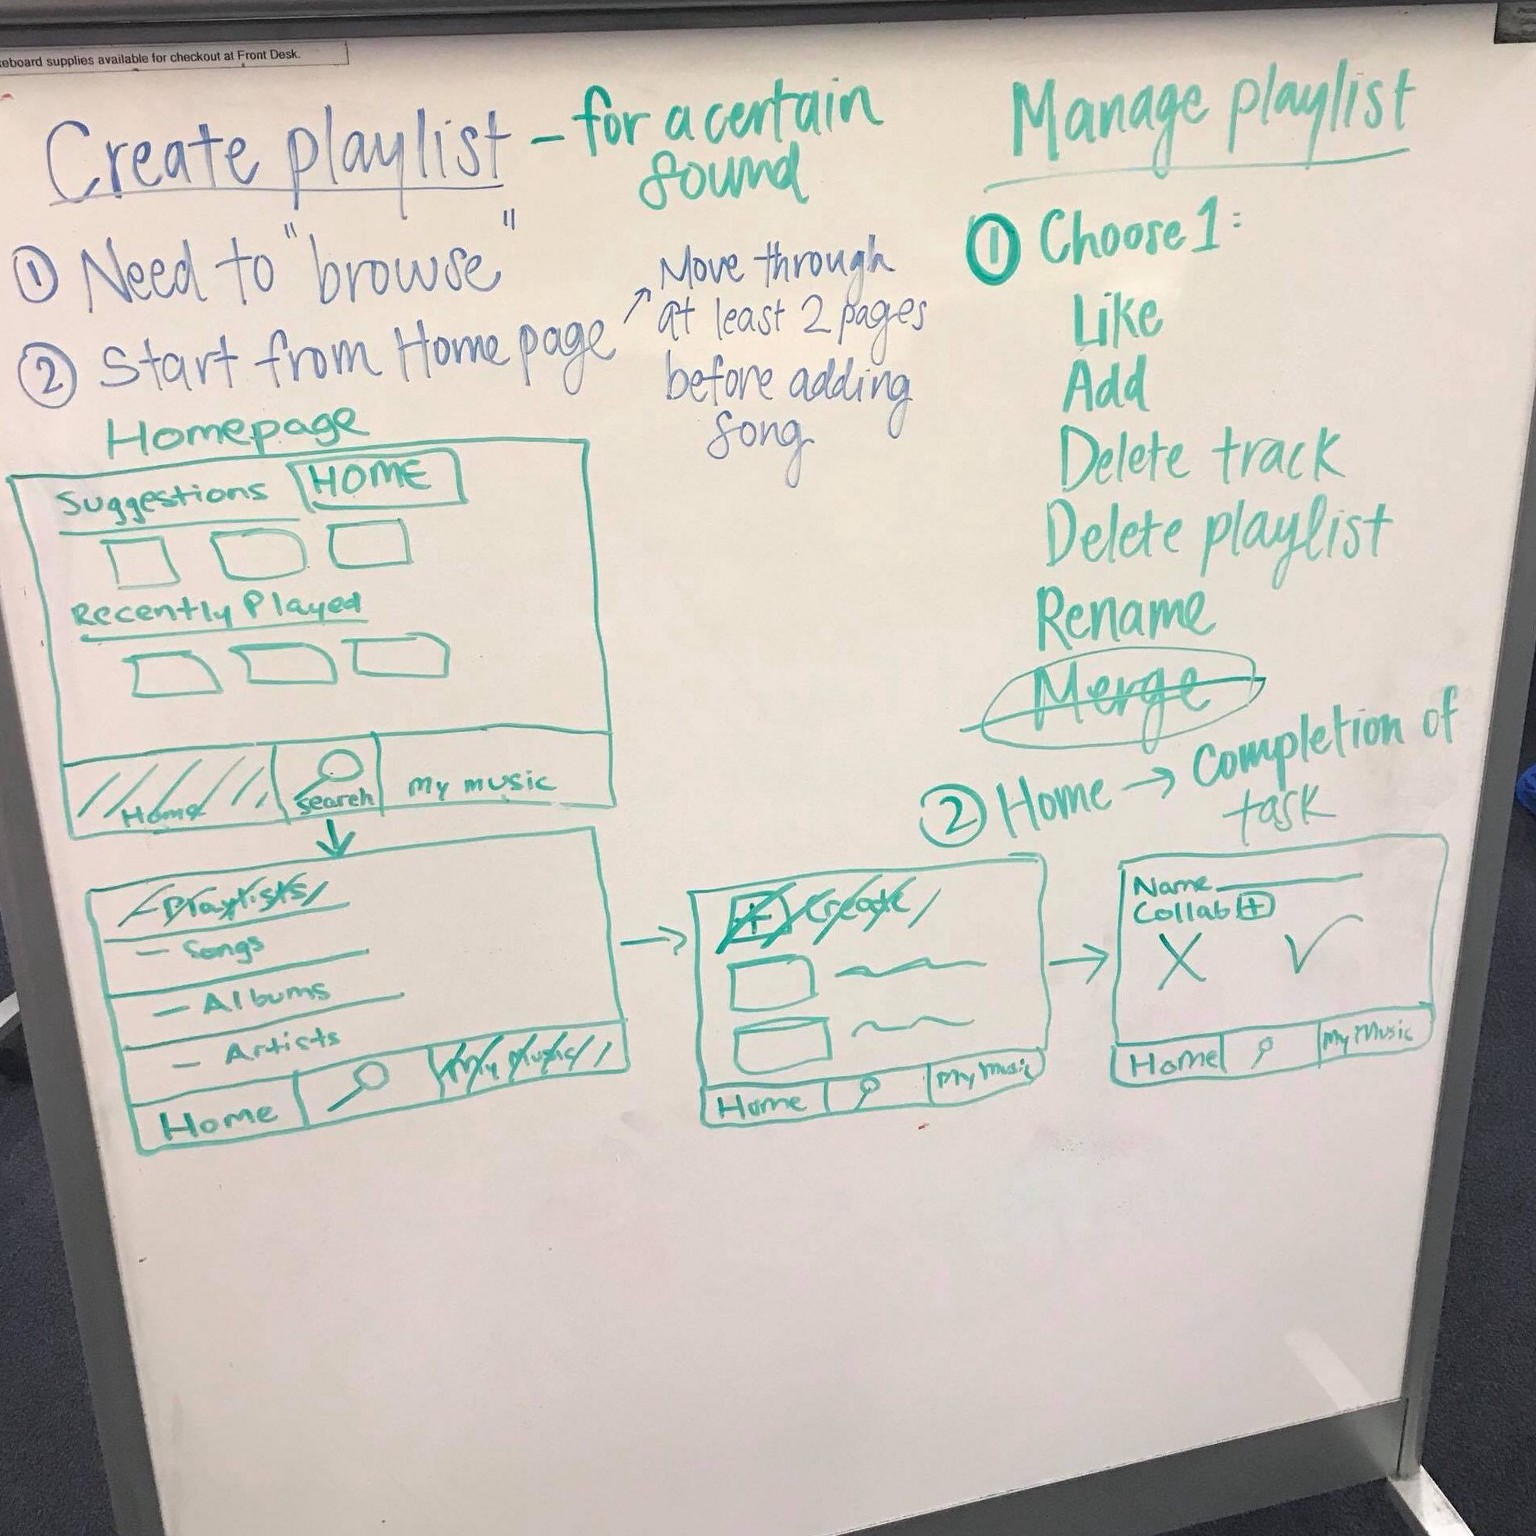 eboard supplies available for checkout at Front Desk.
Create playlist - for a certain
sound
① Need to "browse"
② Start from Home page
Move through
at least 2 pages
before adding
song
Homepage
Suggestions HOME
Recently Played
Home search My music
- Playlists
- Songs
- Albums
- Artists
Home My Music
+ Create
Home My Music
Name
Collab +
X ✓
Home My Music
Manage playlist
① Choose 1:
Like
Add
Delete track
Delete playlist
Rename
Merge
② Home → Completion of
task